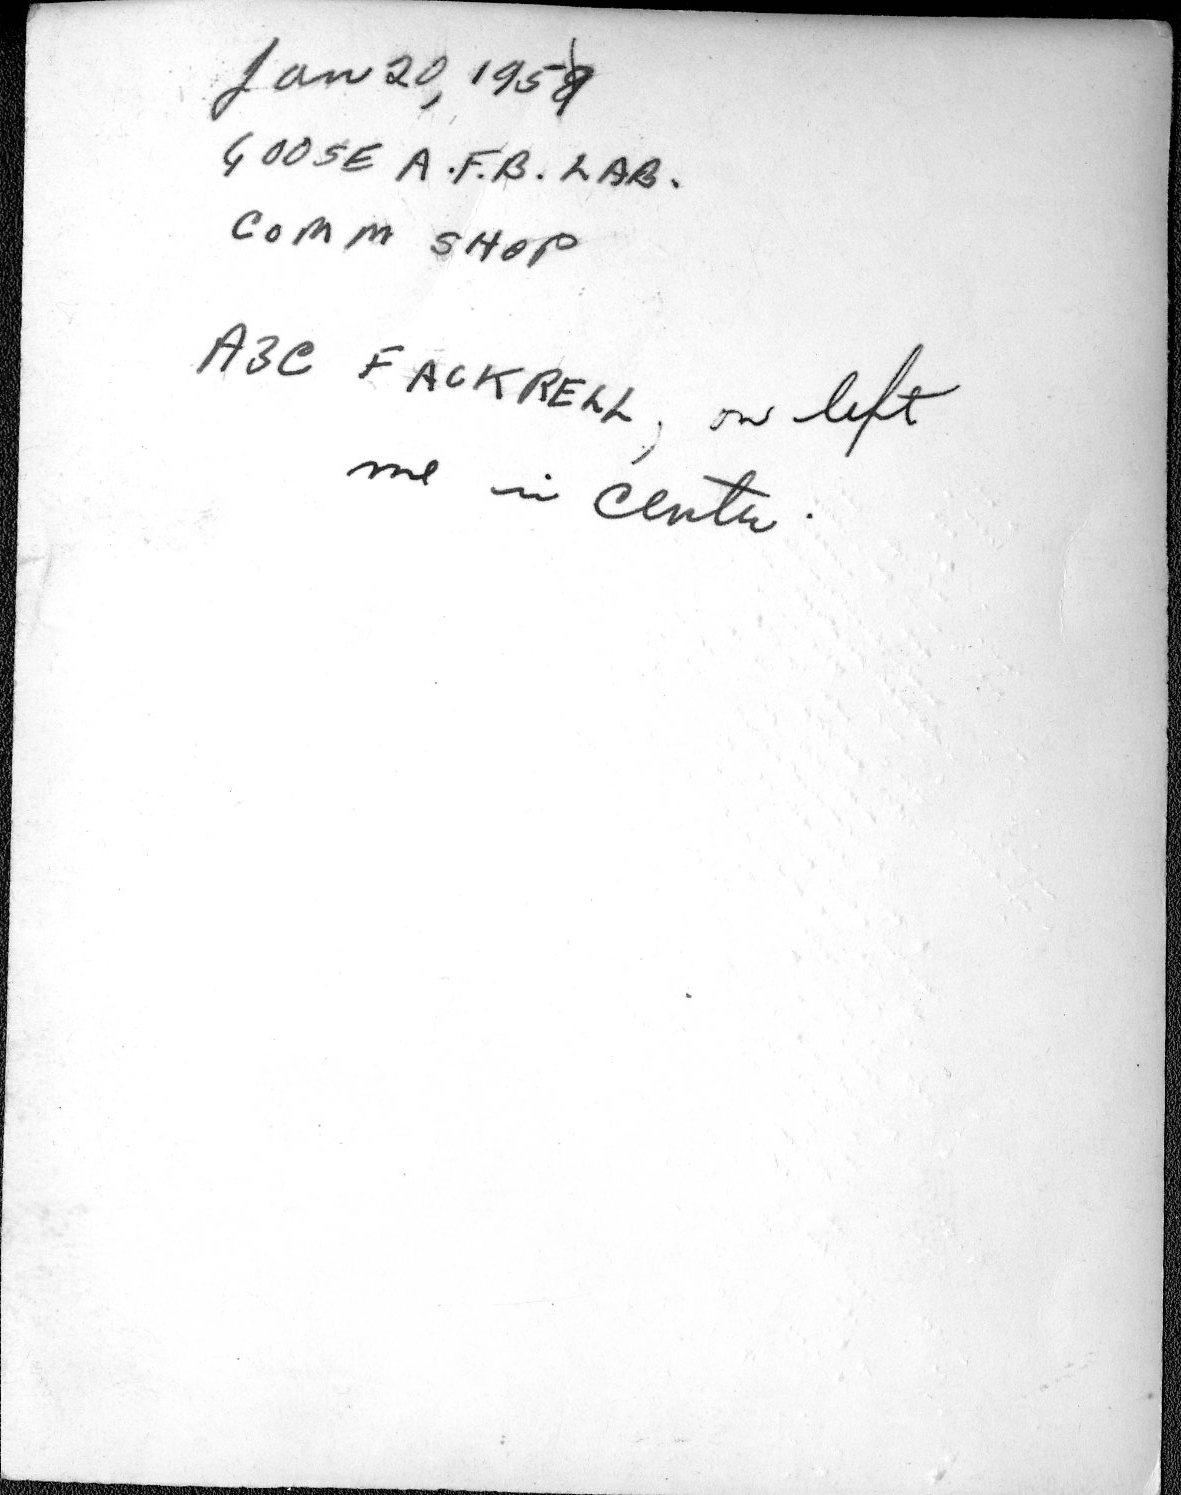 Jan 20, 1959
GOOSE A.F.B. LAB.
COMM SHOP
A3C FACKRELL, on left
me in center.